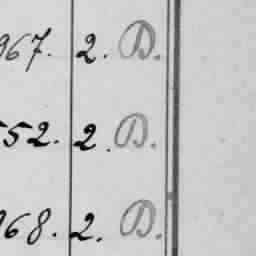 967. 2. D.
552. 2. D.
968. 2. D.